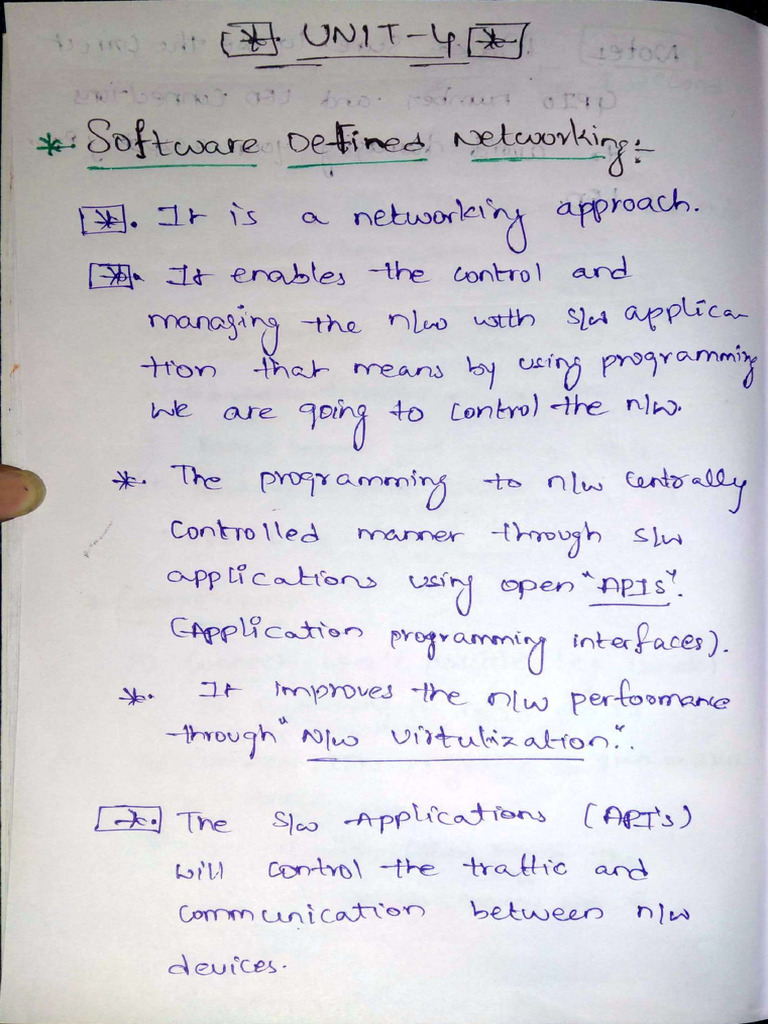 [*]. UNIT-4 [*]
*. Software Defined Networking:-
[*]. It is a networking approach.
[*]. It enables the control and
managing the n/w with s/w applica-
tion that means by using programming
we are going to control the n/w.
*. The programming to n/w centrally
controlled manner through s/w
applications using open "APIs".
(Application programming interfaces).
*. It improves the n/w performance
through "N/w virtulization".
[*.] The s/w Applications (API's)
will control the traffic and
communication between n/w
devices.